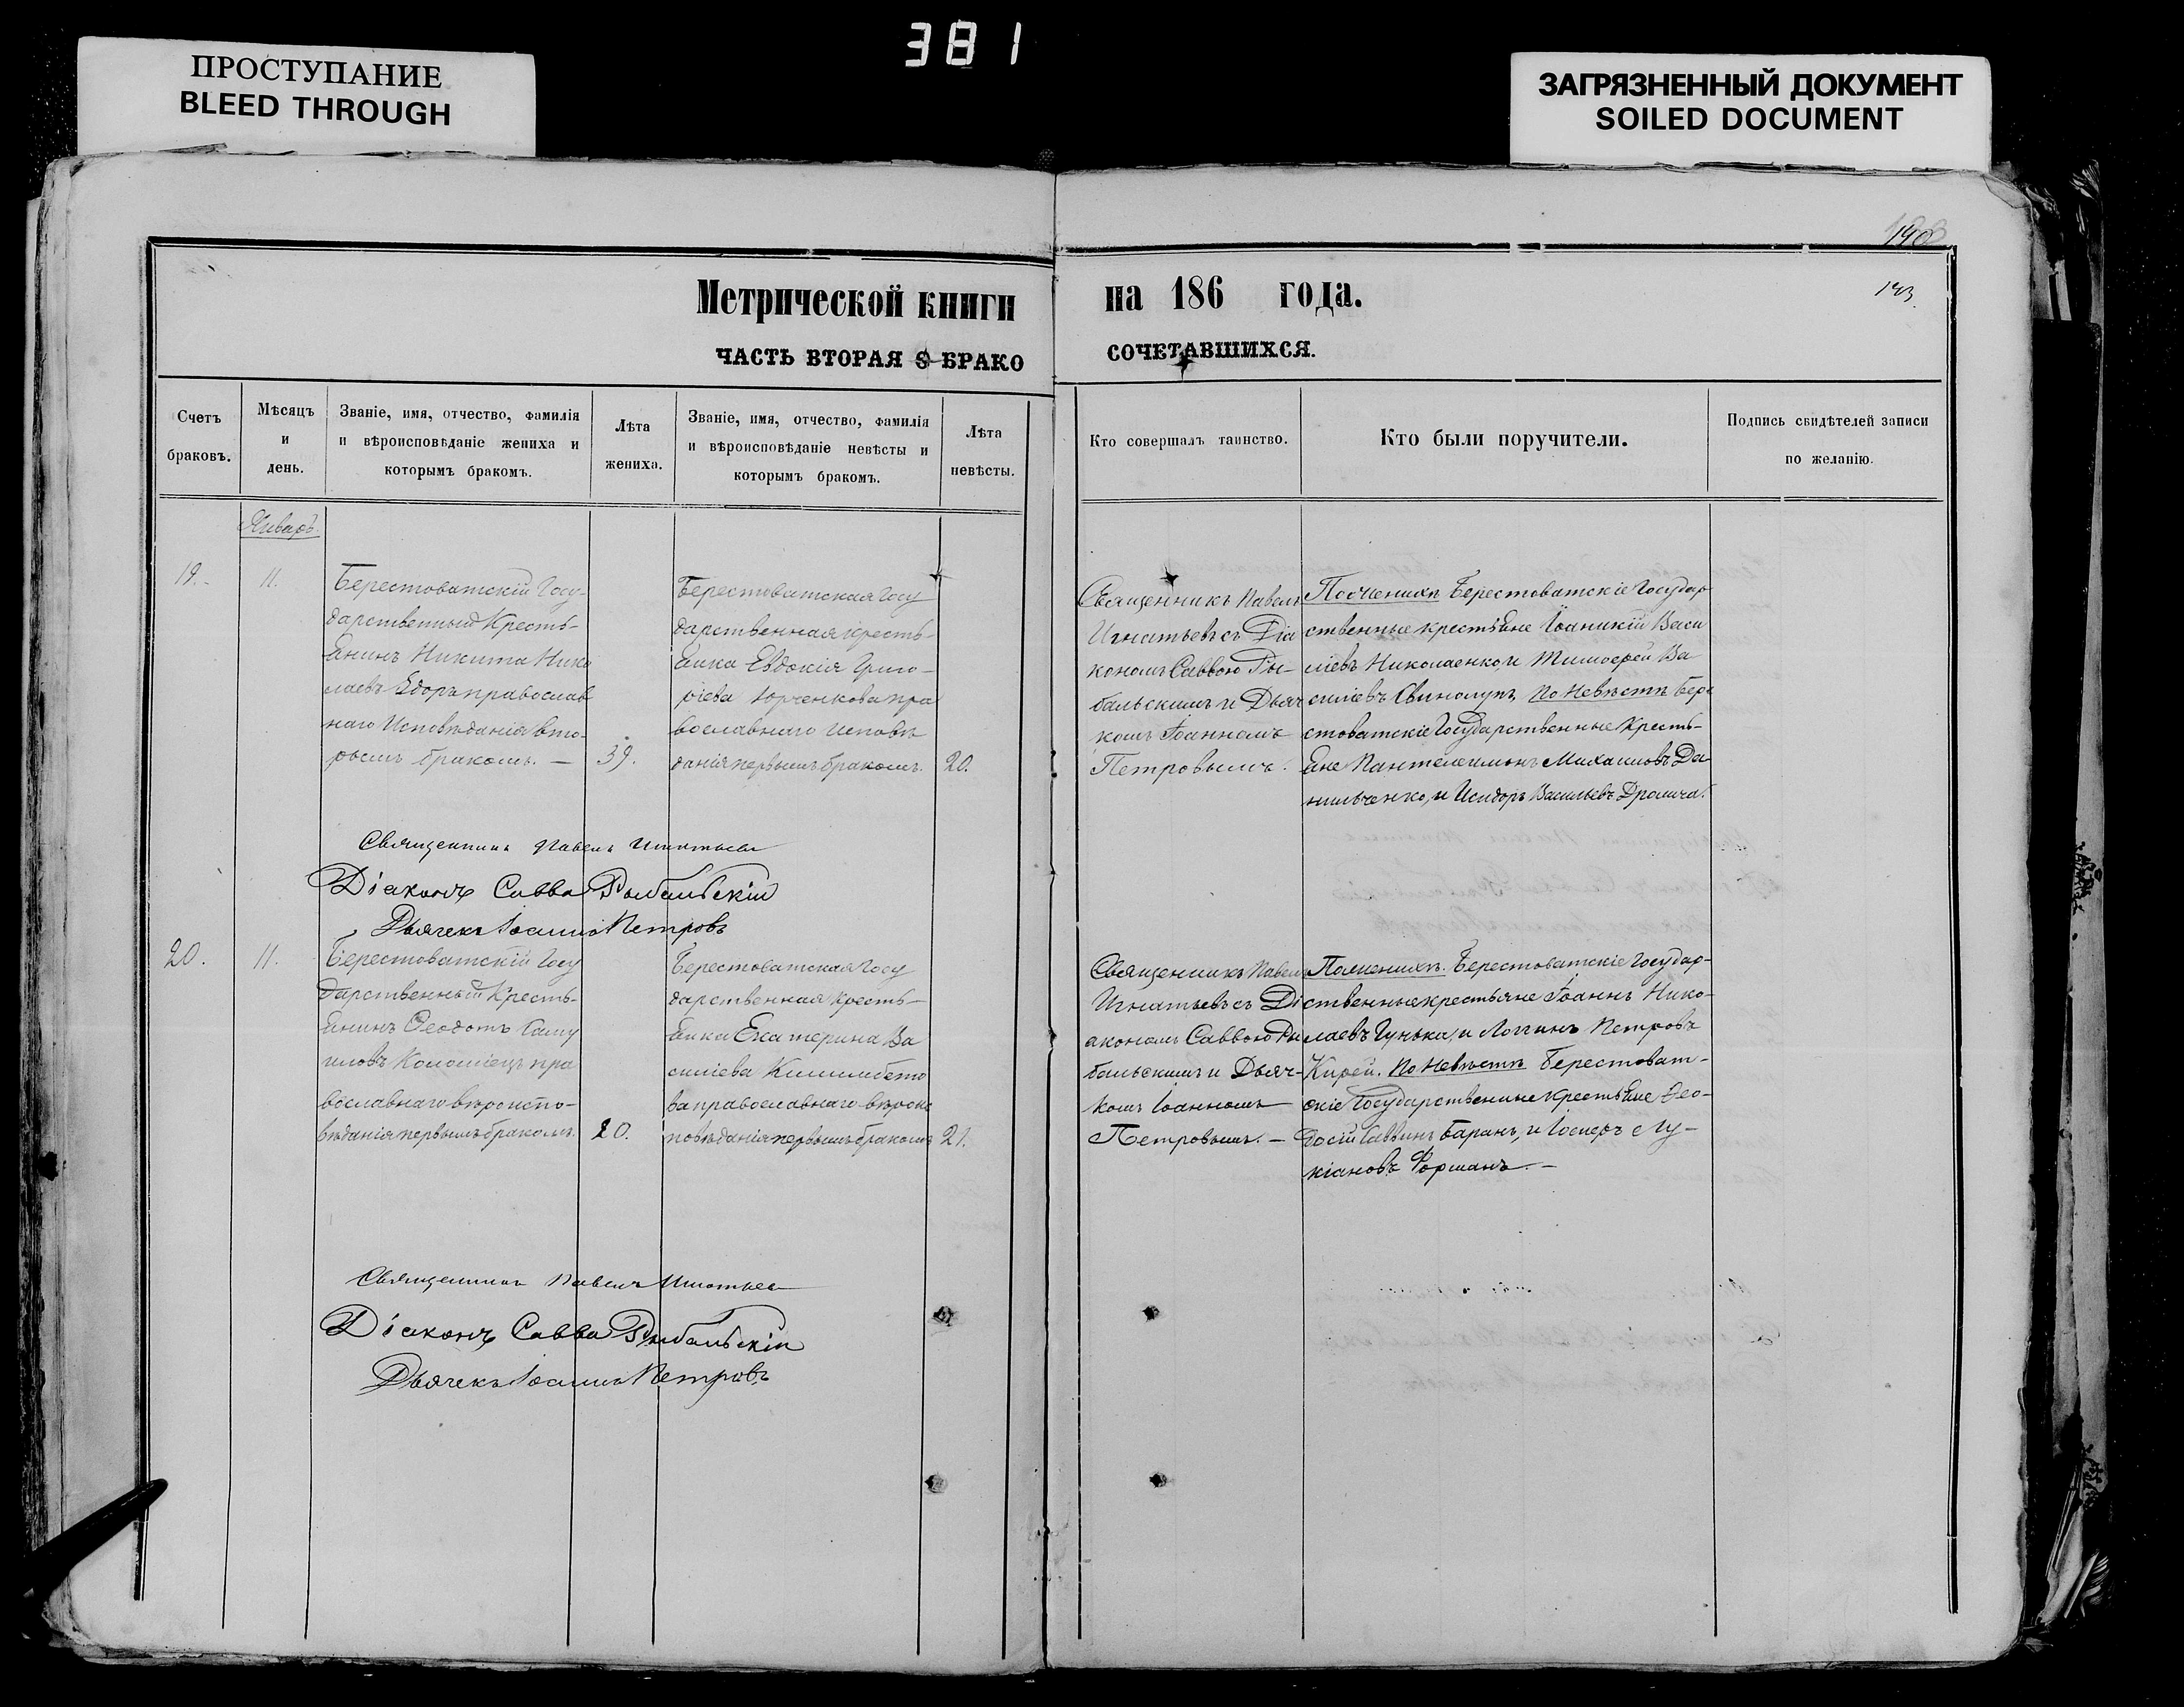 381
ПРОСТУПАНИЕ
BLEED THROUGH
ЗАГРЯЗНЕННЫЙ ДОКУМЕНТ
SOILED DOCUMENT
193
Метрической книги на 186 года.
ЧАСТЬ ВТОРАЯ О БРАКОСОЧЕТАВШИХСЯ.
Счетъ
браковъ.
Мѣсяцъ
и
день.
Званіе, имя, отчество, фамилія
и вѣроисповѣданіе жениха и
которымъ бракомъ.
Лѣта
жениха.
Званіе, имя, отчество, фамилія
и вѣроисповѣданіе невѣсты и
которымъ бракомъ.
Лѣта
невѣсты.
Кто совершалъ таинство.
Кто были поручители.
Подпись свидѣтелей записи
по желанію.
Январь.
19.
11.
Берестоватскій Госу-
дарственный Кресть-
янинъ Никита Нико
лаевъ православ
наго Исповѣданія вто-
рымъ бракомъ. —
39.
Берестоватская Госу
дарственная кресть-
янка Евдокія Григо-
ріева Юрченкова пра
вославнаго исповѣ
данія первымъ бракомъ.
20.
Священникъ Павелъ
Игнатьевъ съ Діа
кономъ Саввою Ры-
бальскимъ и Дьяч
комъ Іоанномъ
Петровымъ.
По Женихѣ Берестоватскіе Государ
ственные крестьяне Іоаникій Васи
ліевъ Николаенко и Тимофей Ва
силіевъ Свинолупъ, По Невѣстѣ Бере
стоватскіе Государственные Кресть-
яне Пантелеимонъ Михаиловъ Да
нильченко, и Исидоръ Васильевъ
Священникъ Павелъ Игнатьевъ
Діаконъ Савва Рыбальскій
Дьячекъ Іоаннъ Петровъ
20.
11.
Берестоватскій Госу
дарственный Кресть-
янинъ Феодотъ Саму
иловъ Коломіецъ пра
вославнаго вѣроиспо-
вѣданія первымъ бракомъ.
20.
Берестоватская Госу
дарственная Кресть-
янка Екатерина Ва
силіева
ва православнаго вѣроис
повѣданія первымъ бракомъ
21.
Священникъ Павелъ
Игнатьевъ съ Ді
акономъ Саввою Ры
бальскимъ и Дьяч-
комъ Іоанномъ
Петровымъ. —
По Женихѣ. Берестоватскіе Государ-
ственные крестьяне Іоаннъ Нико-
лаевъ Гунька, и Логгинъ Петровъ
Кирей. По Невѣстѣ Берестоват-
скіе Государственные крестьяне Фео-
досій Саввинъ Баранъ, и Іосифъ Лу-
кіановъ Форманъ. —
Священникъ Павелъ Игнатьевъ
Діаконъ Савва Рыбальскій
Дьячекъ Іоаннъ Петровъ